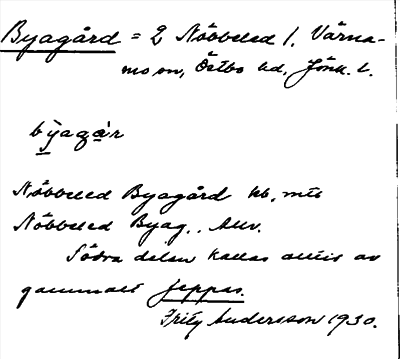 Byagård = 2 Nöbbeled 1. Värna-
mo sn, Östbo hd, Jönk. l.
Nöbbeled Byagård kb, mtb
Nöbbeled Byag., Allv.
Södra delen kallas alltid av
gammalt Jeppas.
Fritz Andersson 1930.